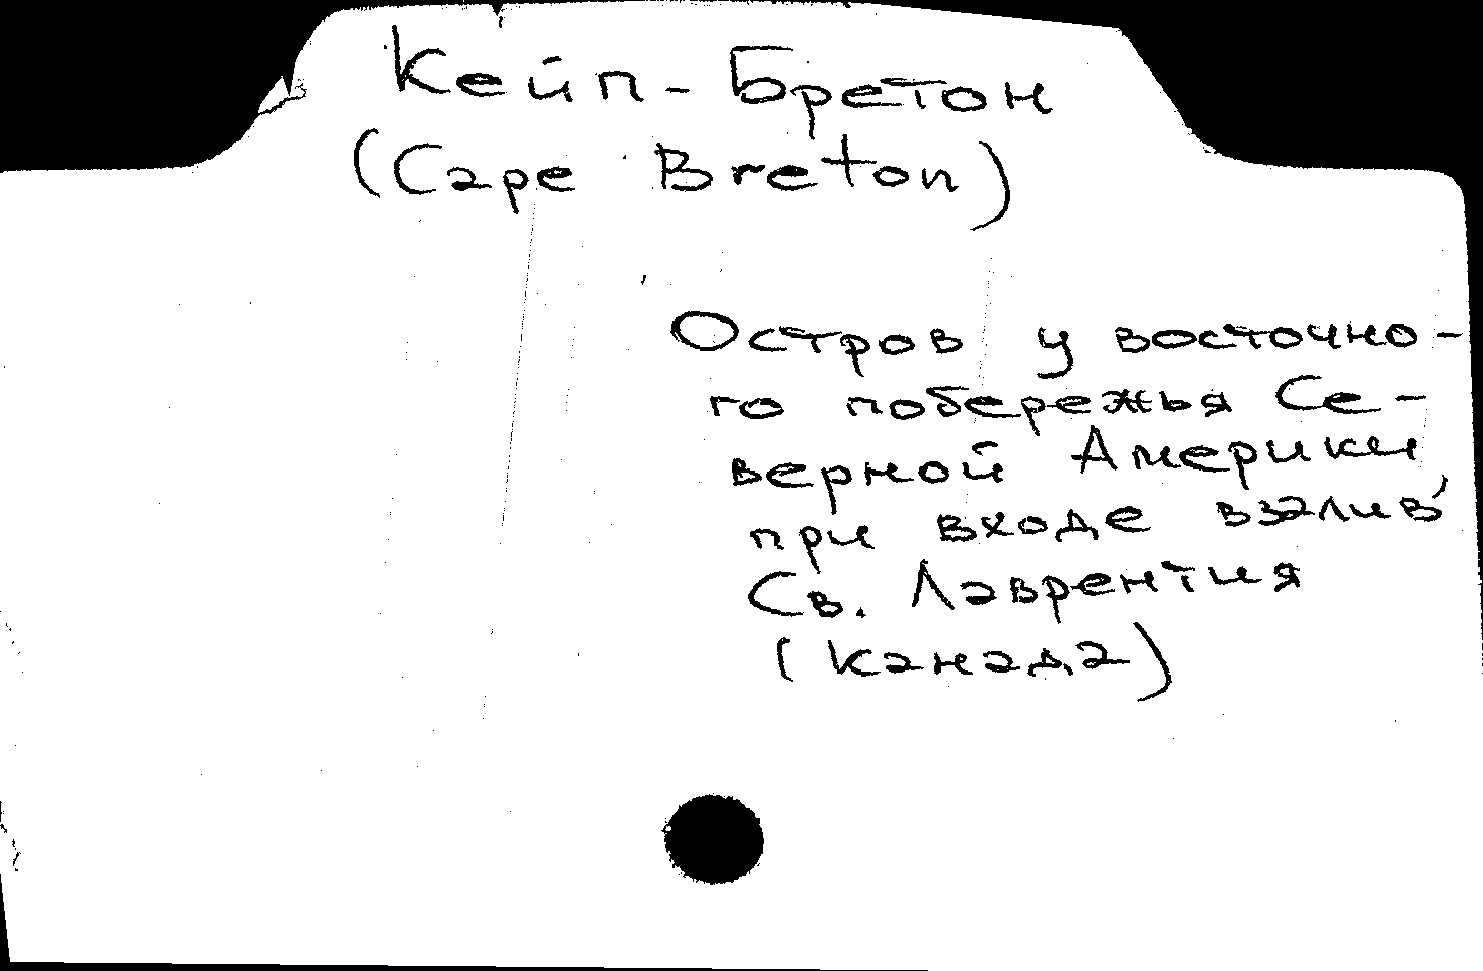 Кейп-Бретон
(Cape Breton)
Остров у восточно-
го побережья Се-
верной Америки
при входе в залив
Св. Лаврентия
(Канада)